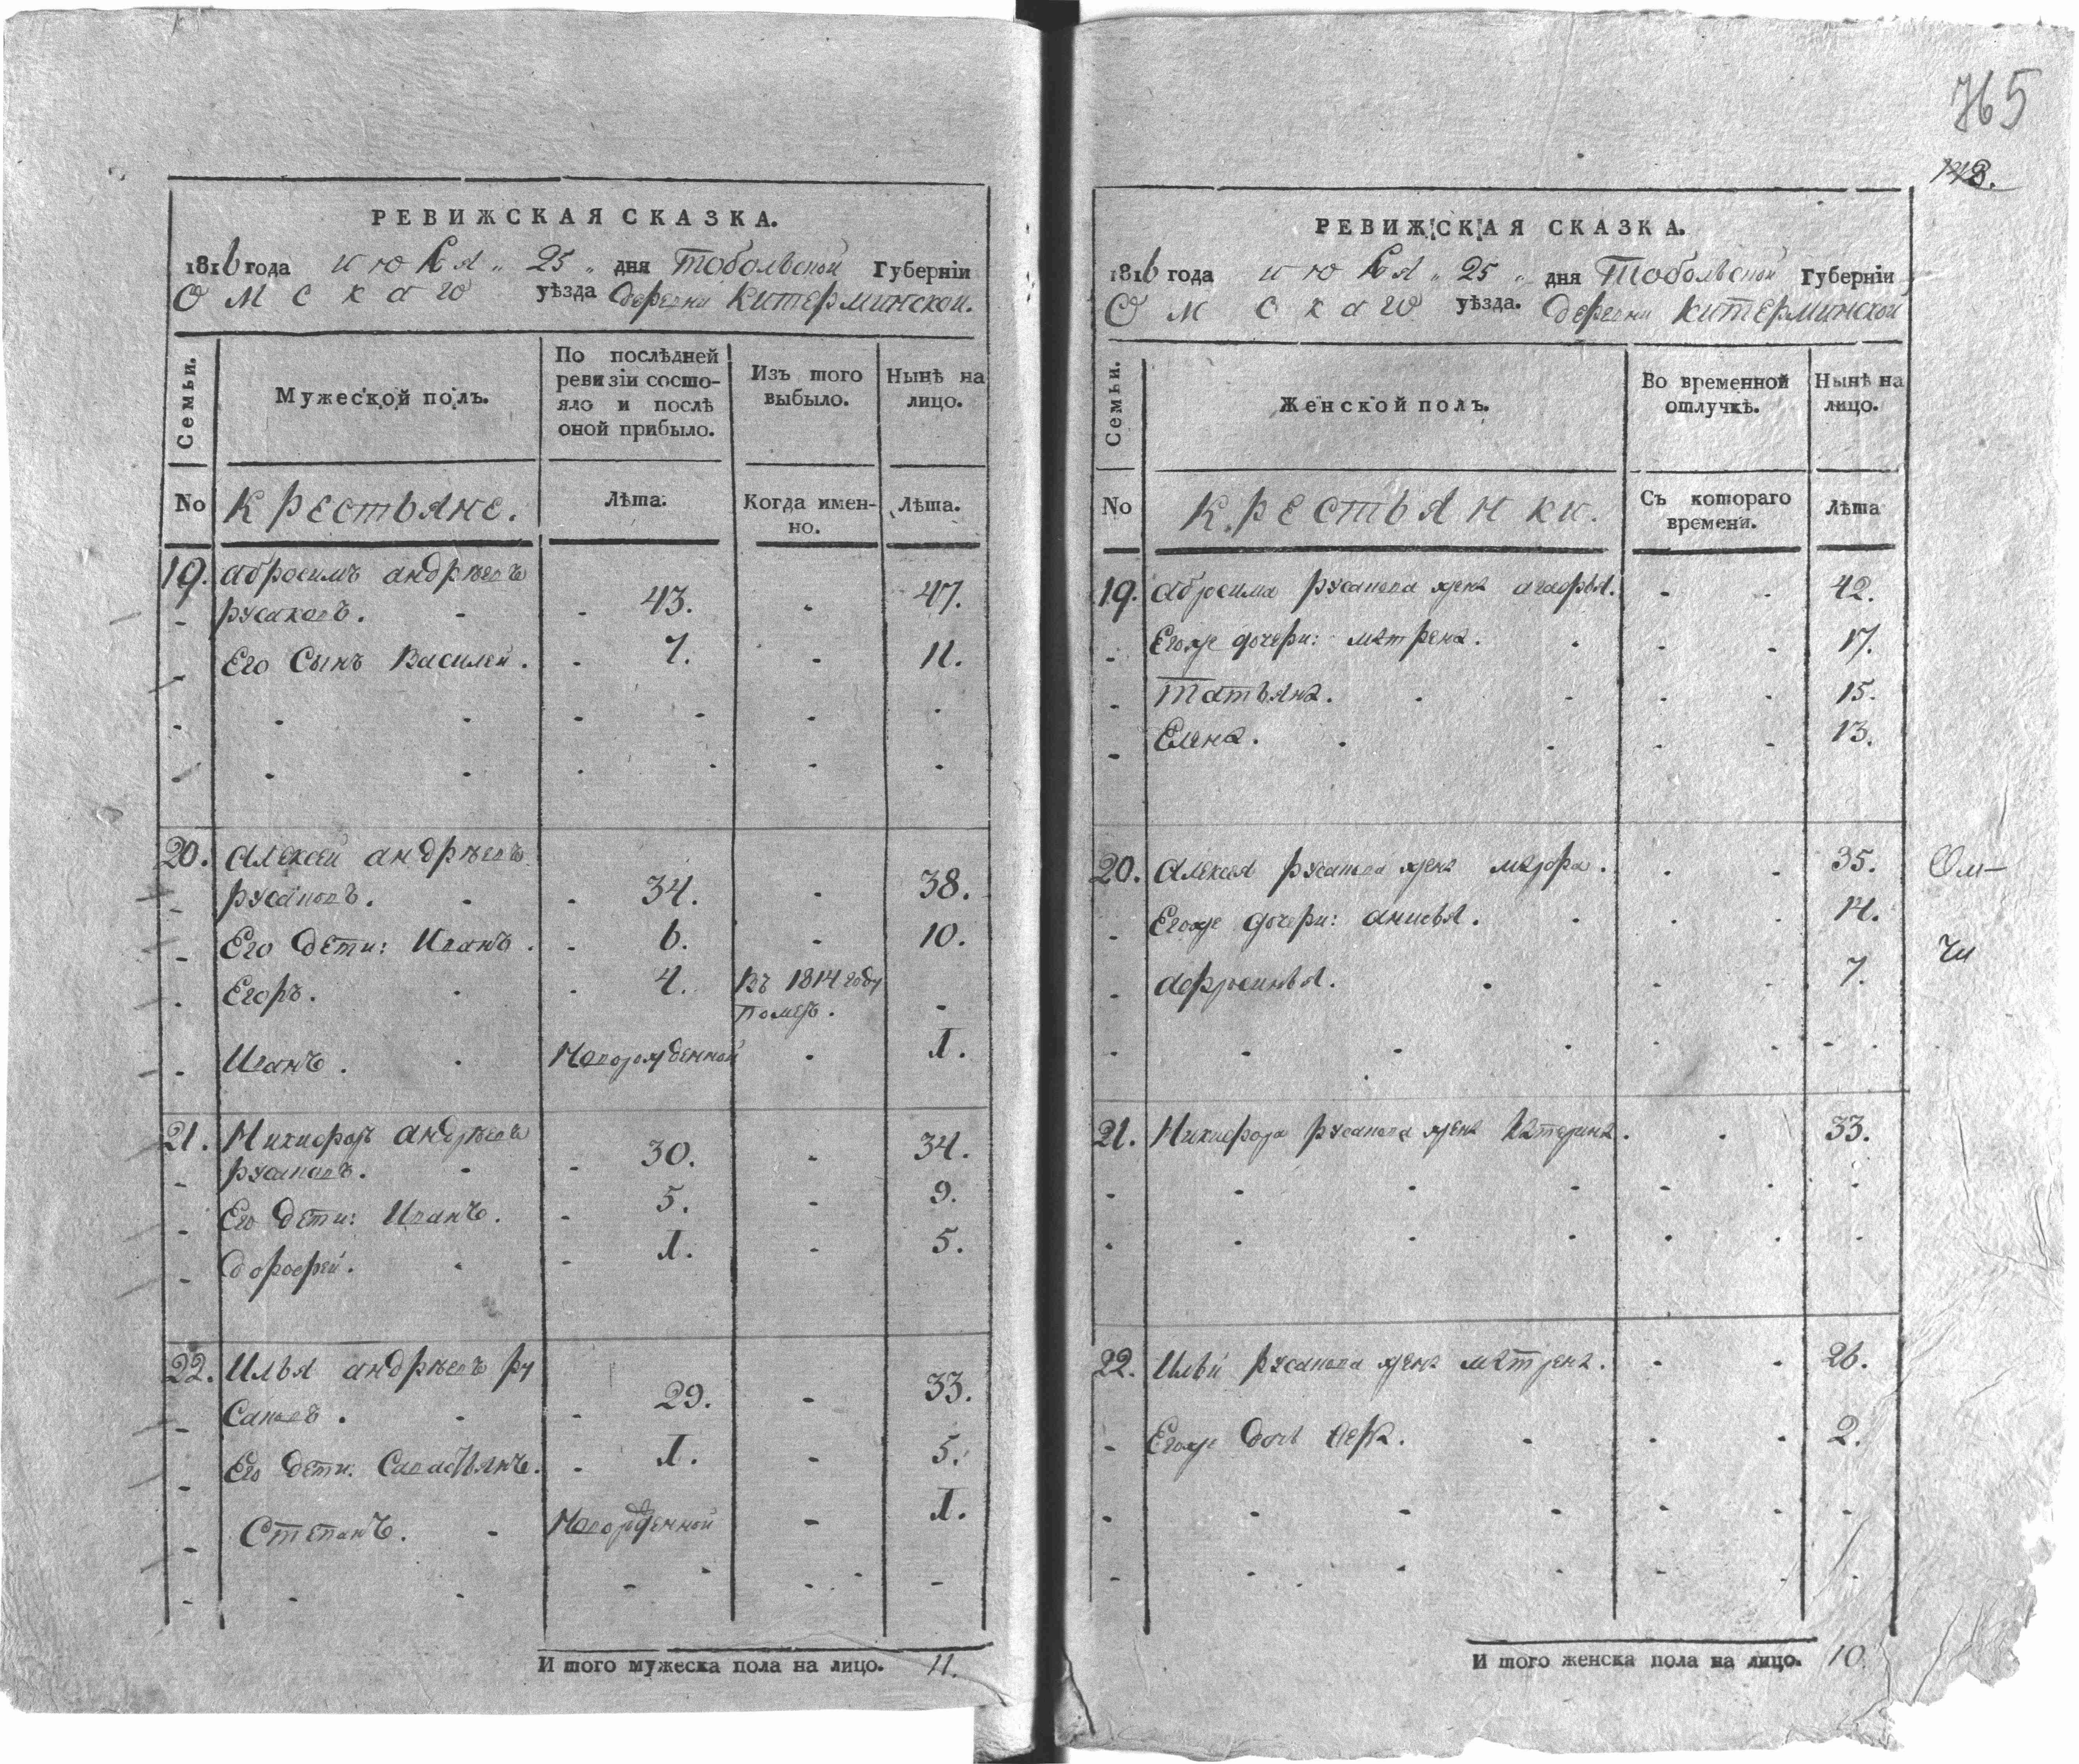 765
148.
РЕВИЖСКАЯ СКАЗКА.
1816 года июля „ 25 „ дня Тобольской Губерніи
Омскаго уѣзда деревни Китерминской.
Семьи.
Мужеской полъ.
По послѣдней
ревизіи состо-
яло и послѣ
оной прибыло.
Изъ того
выбыло.
Нынѣ на
лицо.
No
Крестьяне.
Лѣта.
Когда имен-
но.
Лѣта.
19. Абросимъ Андрѣевъ
Русановъ. 43. 47.
Его Сынъ Василей. 7. 11.
20. Алексей Андрѣевъ
Русановъ. 34. 38.
Его дети: Иванъ. 6. 10.
Егоръ. 4. Въ 1814 году
померъ.
Иванъ. Новорожденной 1.
21. Никифоръ Андрѣевъ
Русановъ. 30. 34.
Его дети: Иванъ. 5. 9.
Дорофей. 1. 5.
22. Илья Андрѣевъ Ру
сановъ. 29. 33.
Его дети: Савастьянъ. 1. 5.
Степанъ. Новорожденной 1.
И того мужеска пола на лицо. 11.
РЕВИЖСКАЯ СКАЗКА.
1816 года июля „ 25 „ дня Тобольской Губерніи
Омскаго уѣзда. деревни Китерминской
Семьи.
Женской полъ.
Во временной
отлучкѣ.
Нынѣ на
лицо.
No
Крестьянки.
Съ котораго
времени.
Лѣта
19. Абросима Русанова жена Агафья. 42.
Егоже дочери: Матрена. 17.
Татьяна. 15.
Елена. 13.
20. Алексея Русанова жена Мавра. 35.
Егоже дочери: Анисья. 14.
Афросинья. 7.
Ом-
21. Никифора Русанова жена Катерина. 33.
22. Ильи Русанова жена Матрена. 26.
Егоже дочь Вера. 2.
И того женска пола на лицо. 10.